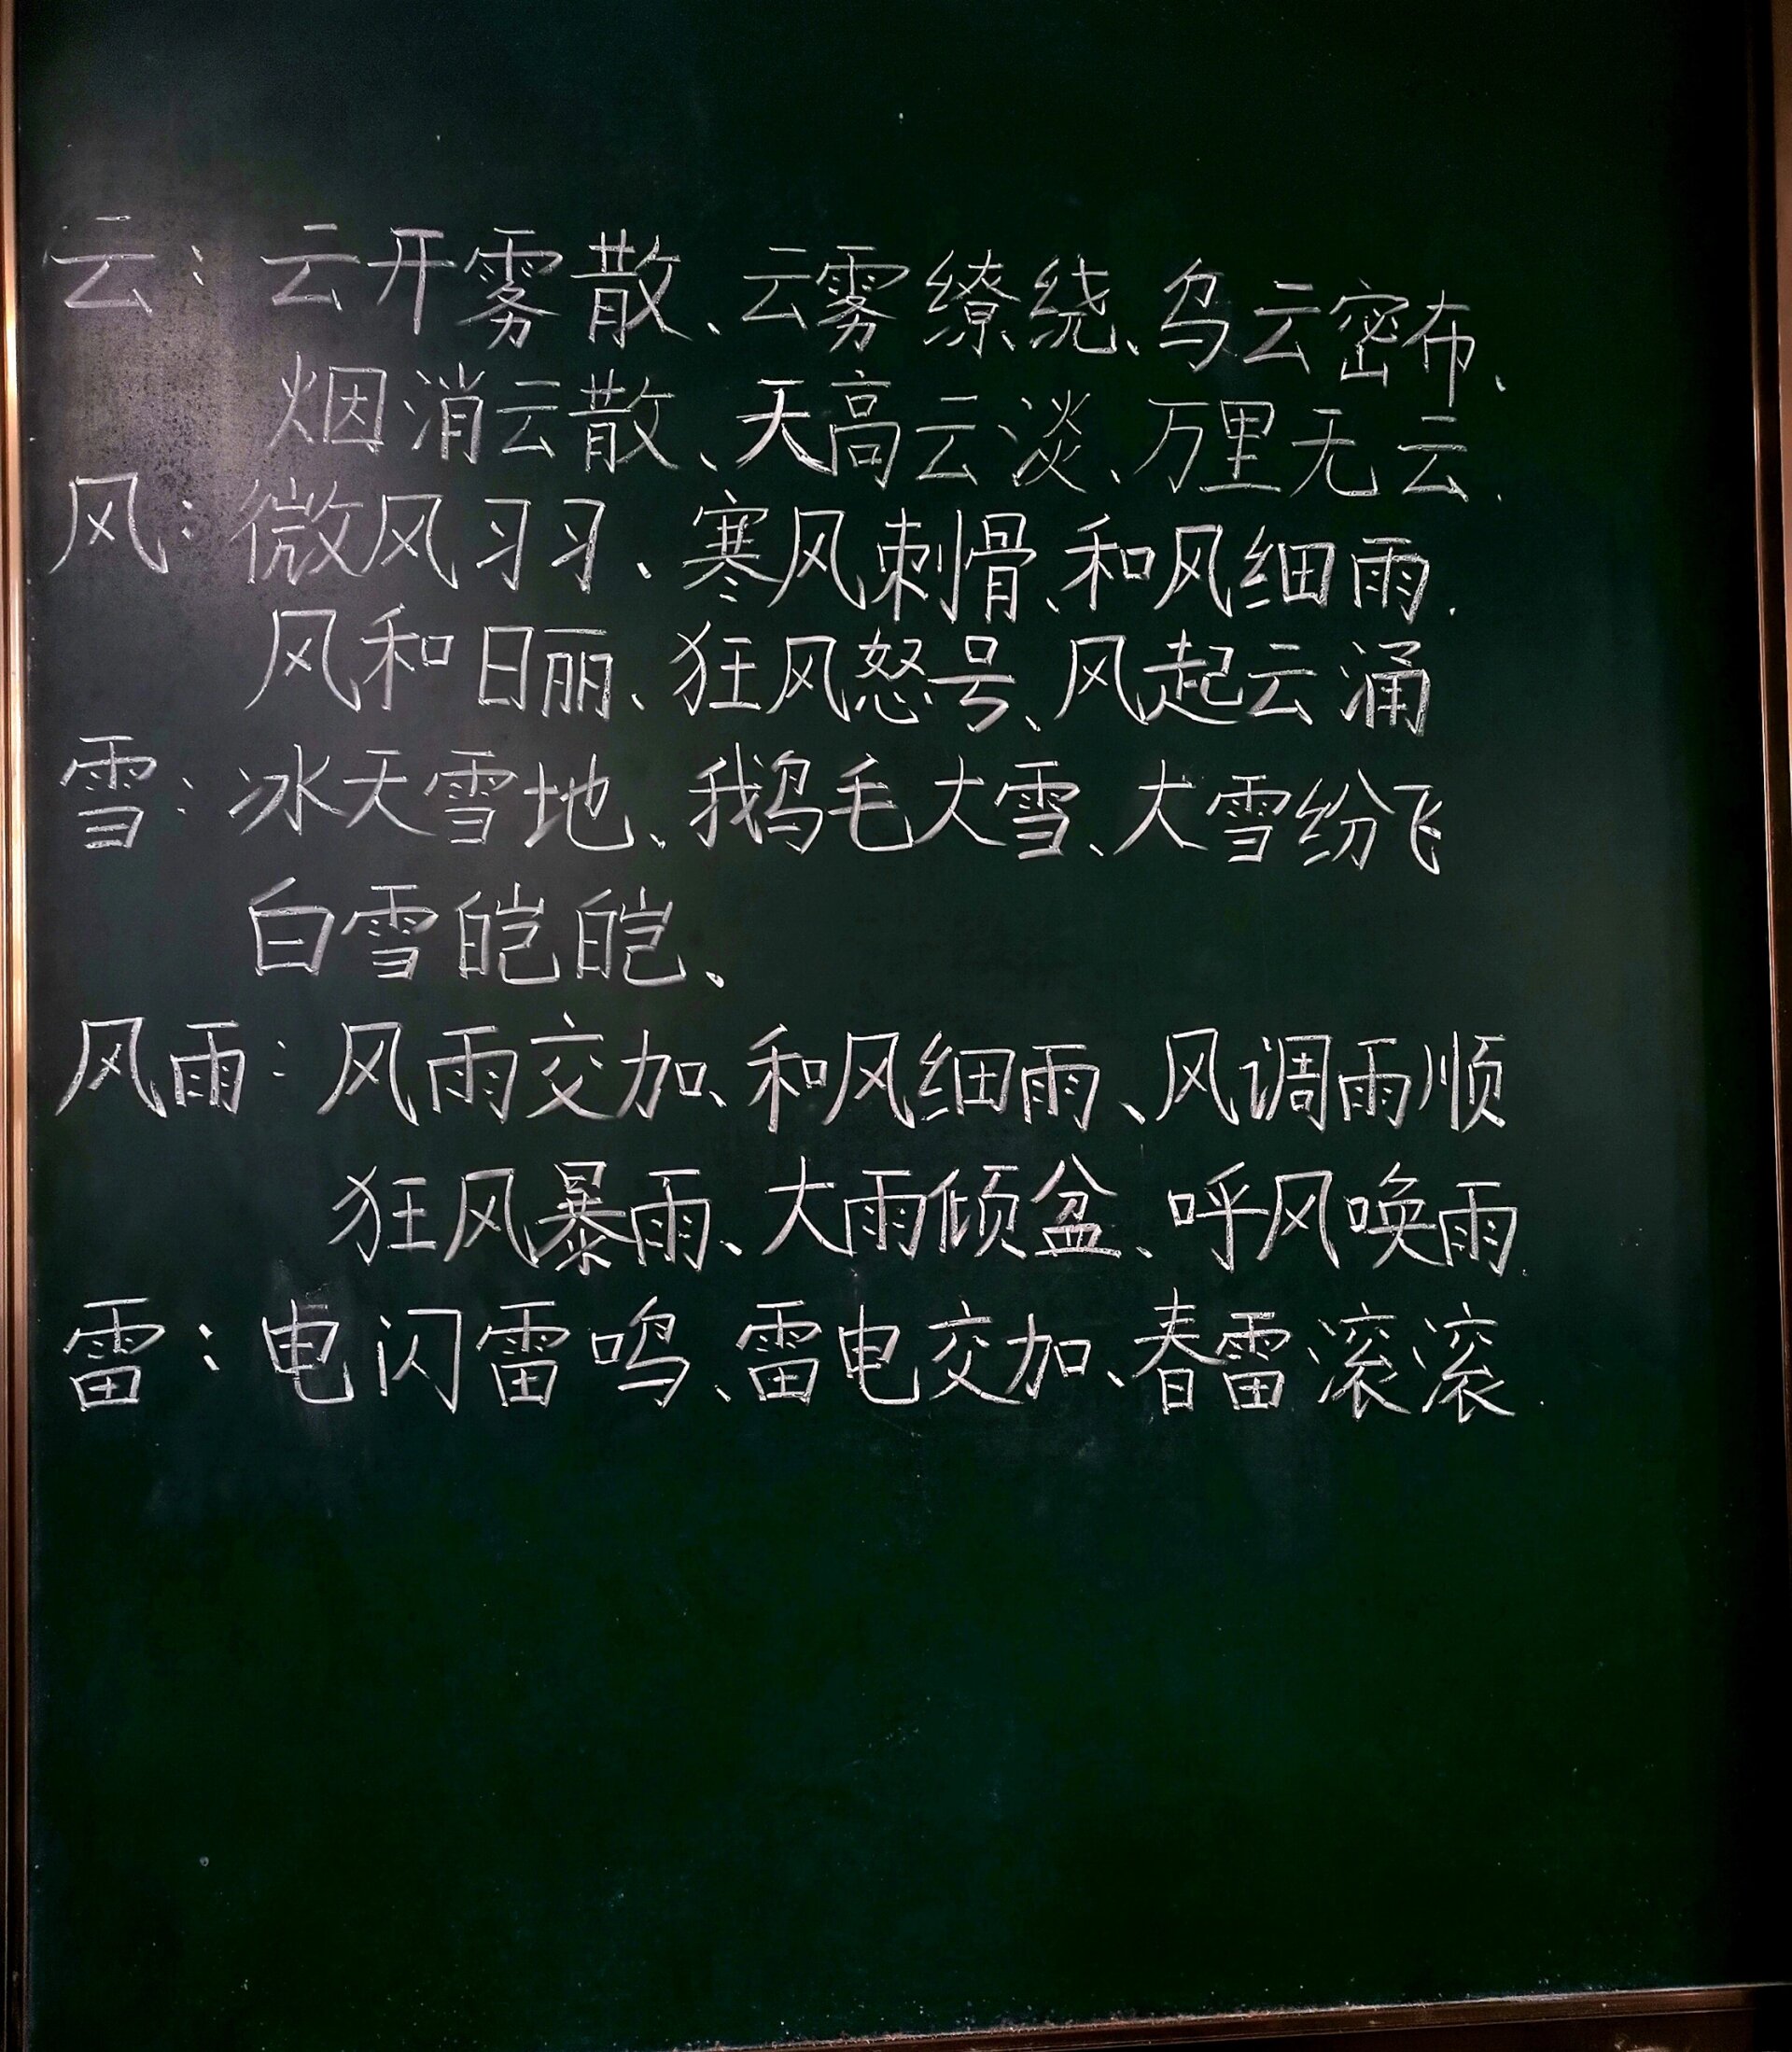 云：云开雾散、云雾缭绕、乌云密布、
烟消云散、天高云淡、万里无云.
风：微风习习、寒风刺骨、和风细雨.
风和日丽、狂风怒号、风起云涌
雪：冰天雪地、鹅毛大雪、大雪纷飞
白雪皑皑、
风雨：风雨交加、和风细雨、风调雨顺
狂风暴雨、大雨倾盆、呼风唤雨.
雷：电闪雷鸣、雷电交加、春雷滚滚.